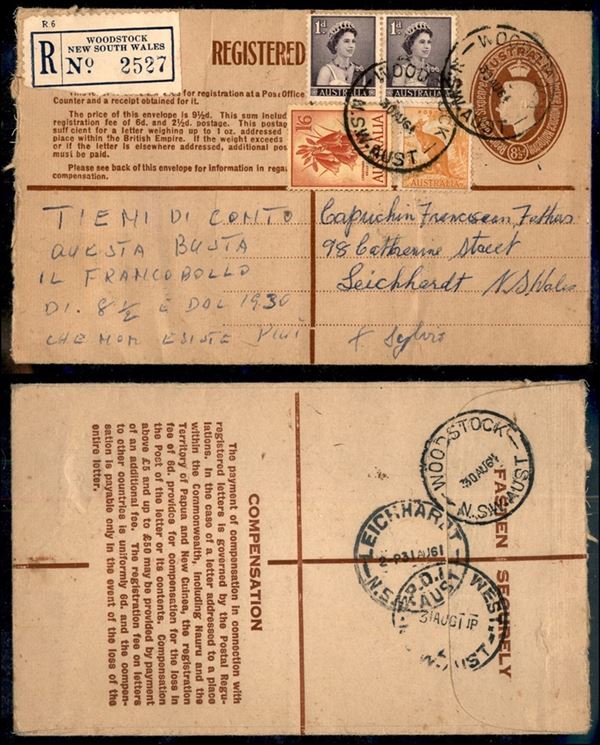 R 6
R
WOODSTOCK
NEW SOUTH WALES
No 2527
REGISTERED
1d
AUSTRALIA
1d
AUSTRALIA
1/6
AUSTRALIA
AUSTRALIA
WOODSTOCK
30AU61
N.S.W.-AUST
AUSTRALIA
8½d
for registration at a Post Office
Counter and a receipt obtained for it.
The price of this envelope is 9½d. This sum
registration fee of 6d. and 2½d. postage. This
sufficient for a letter weighing up to 1 oz. addressed
place within the British Empire. If the weight exceeds
or if the letter is elsewhere addressed, additional
must be paid.
Please see back of this envelope for information in
compensation.
TIENI DI CONTO
QUESTA BUSTA
IL FRANCOBOLLO
DI. 8½ E DOL 1930
CHE NON ESISTE PIUI
Capuchin Franciscan Fathers
98 Catherine Street
Leichhardt N.S.Wales
COMPENSATION
The payment of compensation in connection with
registered letters is governed by the Postal Regu-
lations. In the case of a letter addressed to a place
within the Commonwealth, including Nauru and the
Territory of Papua and New Guinea, the registration
fee of 6d. provides for compensation for the loss in
the Post of the letter or its contents. Compensation
above £5 and up to £50 may be provided by payment
of an additional fee. The registration fee on letters
to other countries is uniformly 6d. and the compen-
sation is payable only in the event of the loss of the
entire letter.
FASTEN SECURELY
WOODSTOCK
30AU61
N.S.W-AUST
LEICHHARDT
31AU61
31AUG1